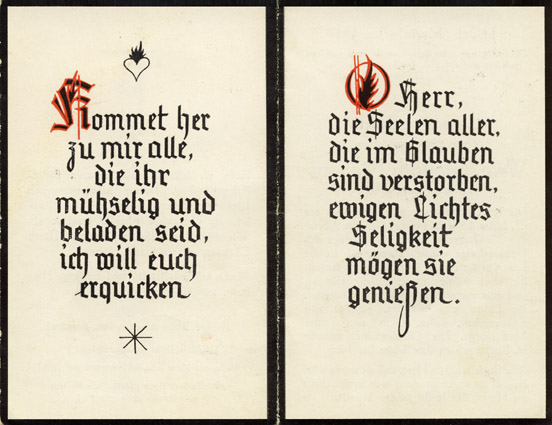 Kommet her
zu mir alle,
die ihr
mühselig und
beladen seid,
ich will euch
erquicken
O Herr,
die Seelen aller,
die im Glauben
sind verstorben,
ewigen Lichtes
Seligkeit
mögen sie
genießen.